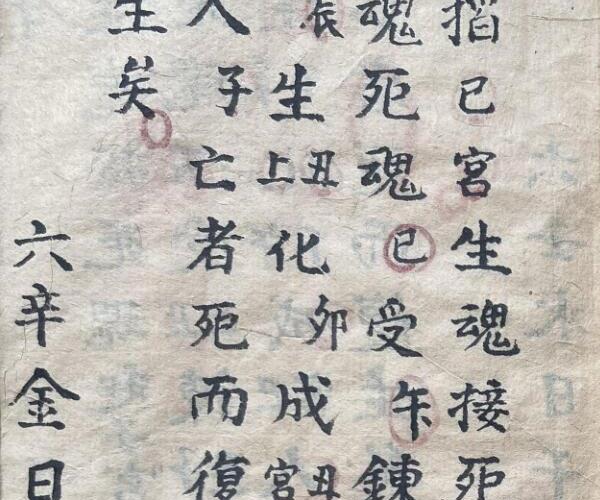 掐巳宮生魂接死
魂死魂巳受午鍊
辰生丑上化卯成丑宮
人子亡者死而復
生矣
六辛金日